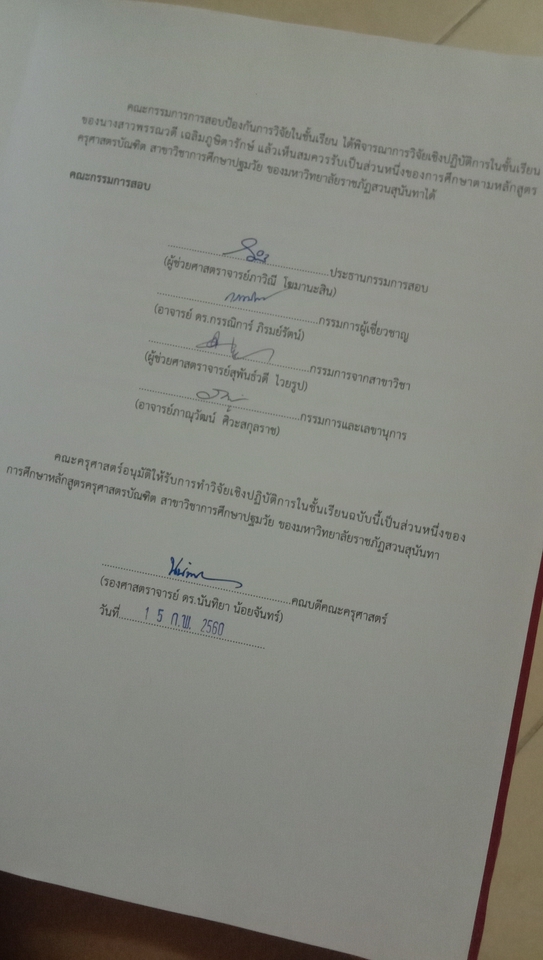 คณะกรรมการการสอบป้องกันการวิจัยในชั้นเรียน ได้พิจารณาการวิจัยเชิงปฏิบัติการในชั้นเรียน
ของนางสาวพรรณวดี เฉลิมภูษิตารักษ์ แล้วเห็นสมควรรับเป็นส่วนหนึ่งของการศึกษาตามหลักสูตร
ครุศาสตรบัณฑิต สาขาวิชาการศึกษาปฐมวัย ของมหาวิทยาลัยราชภัฏสวนสุนันทาได้
คณะกรรมการสอบ
ประธานกรรมการสอบ
(ผู้ช่วยศาสตราจารย์ภาวิณี โฆมานะสิน)
กรรมการผู้เชี่ยวชาญ
(อาจารย์ ดร.กรรณิการ์ ภิรมย์รัตน์)
กรรมการจากสาขาวิชา
(ผู้ช่วยศาสตราจารย์สุพันธ์วดี ไวยรูป)
กรรมการและเลขานุการ
(อาจารย์ภาณุวัฒน์ ศิวะสกุลราช)
คณะครุศาสตร์อนุมัติให้รับการทำวิจัยเชิงปฏิบัติการในชั้นเรียนฉบับนี้เป็นส่วนหนึ่งของ
การศึกษาหลักสูตรครุศาสตรบัณฑิต สาขาวิชาการศึกษาปฐมวัย ของมหาวิทยาลัยราชภัฏสวนสุนันทา
คณบดีคณะครุศาสตร์
(รองศาสตราจารย์ ดร.นันทิยา น้อยจันทร์)
วันที่ 1 5 ก.พ. 2560